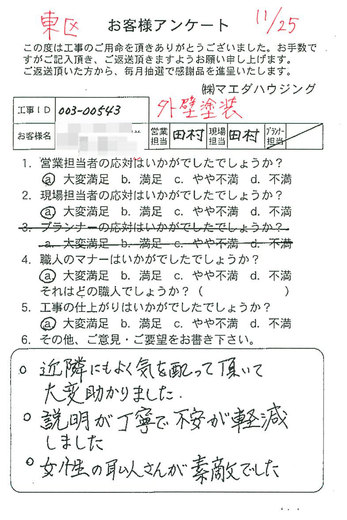 東区
お客様アンケート
11/25
この度は工事のご用命を頂きありがとうございました。お手数で
すがご記入頂き、ご返送頂きますようお願い申し上げます。
ご返送頂いた方から、毎月抽選で感謝品を進呈いたします。
㈱マエダハウジング
工事ID 003-00543 外壁塗装
お客様名 営業担当 田村 現場担当 田村 プランナー担当
1. 営業担当者の応対はいかがでしたでしょうか?
a. 大変満足 b. 満足 c. やや不満 d. 不満
2. 現場担当者の応対はいかがでしたでしょうか?
a. 大変満足 b. 満足 c. やや不満 d. 不満
3. プランナーの応対はいかがでしたでしょうか?
a. 大変満足 b. 満足 c. やや不満 d. 不満
4. 職人のマナーはいかがでしたでしょうか?
a. 大変満足 b. 満足 c. やや不満 d. 不満
それはどの職人でしょうか? ( )
5. 工事の仕上がりはいかがでしたでしょうか?
a. 大変満足 b. 満足 c. やや不満 d. 不満
6. その他、ご意見・ご要望をお書き下さい。
○ 近隣にもよく気を配って頂いて
大変助かりました.
○ 説明が丁寧で不安が軽減
しました
○ 女性の職人さんが素敵でした